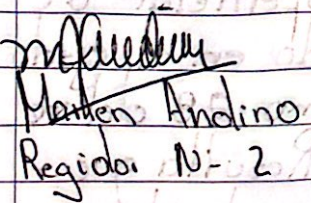 Marlen Andino
Regidor N- 2